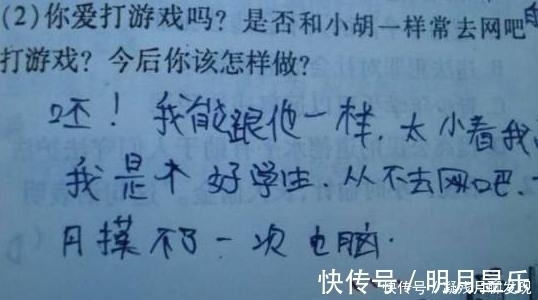 (2)你爱打游戏吗?是否和小胡一样常去网吧的
打游戏?今后你该怎样做?
呸!我能跟他一样,太小看我
我是个好学生.从不去网吧.一
月摸不了一次电脑.
快传号/明月星乐
快传号/